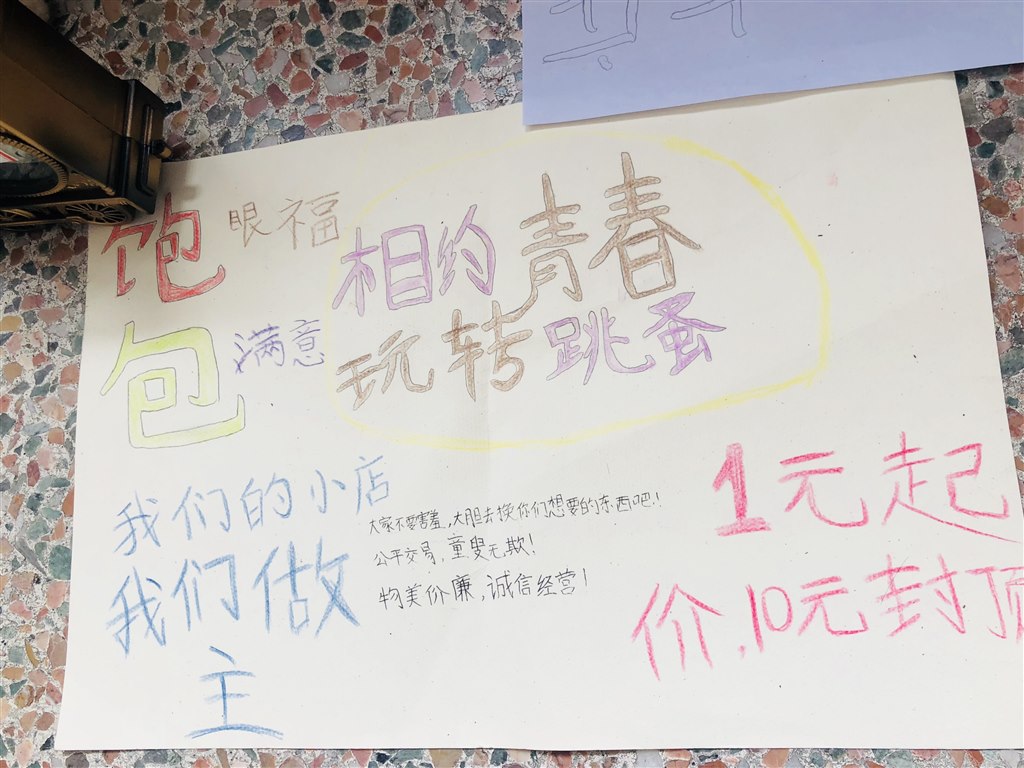 饱眼福
包满意
相约青春
玩转跳蚤
我们的小店
我们做
主
大家不要害羞,大胆去挨你们想要的东西吧!
公平交易,童叟无欺!
物美价廉,诚信经营!
1元起
价,10元封顶